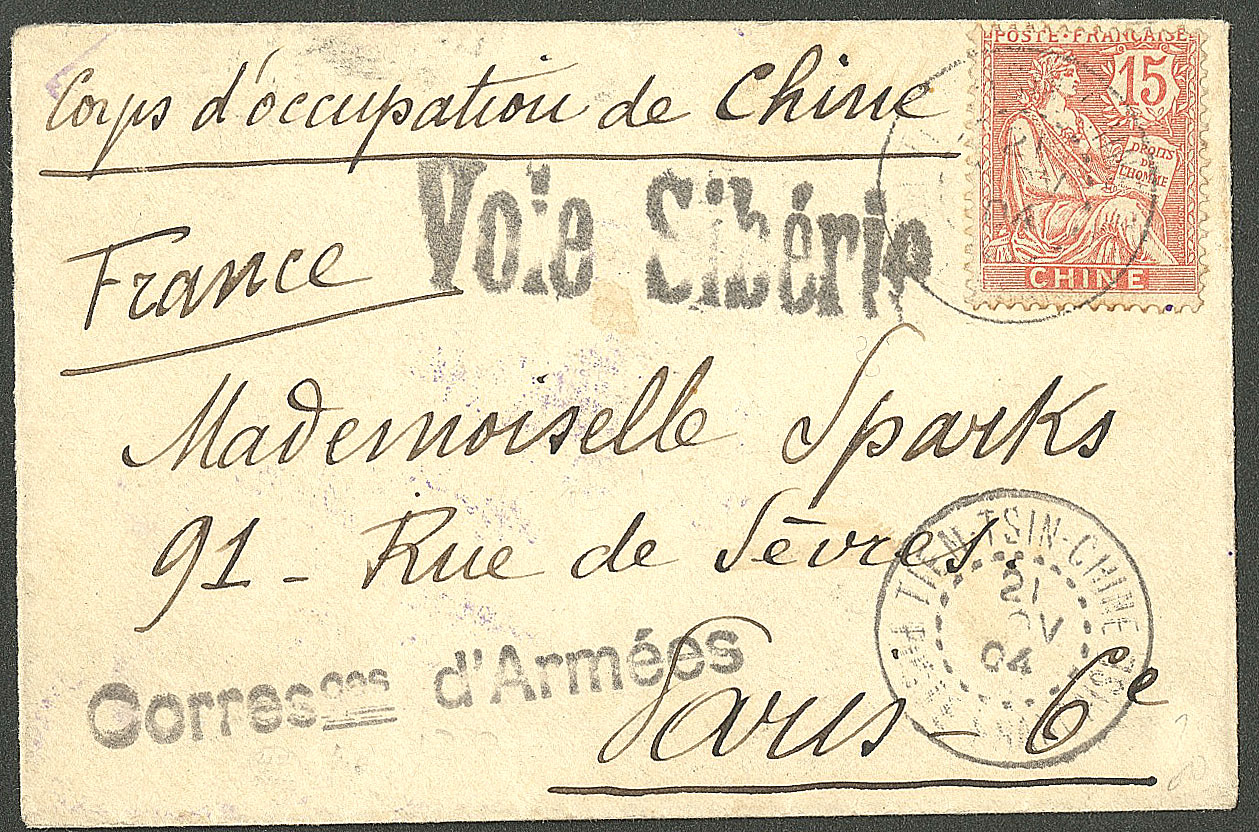 Corps d'occupation de Chine
POSTE·FRANÇAISE
15
DROITS
DE
L'HOMME
CHINE
Voie Sibérie
France
Mademoiselle Sparks
91 - Rue de Sèvres.
Paris - 6e
TIEN-TSIN-CHINE
21
OV
04
Corresces d'Armées